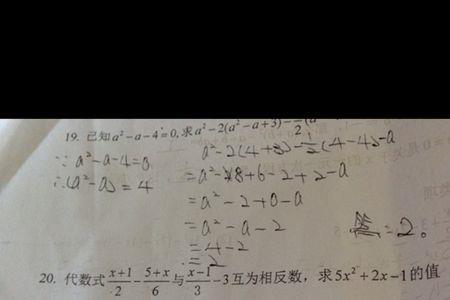 19. 已知a²-a-4=0,求a²-2(a²-a+3)-½(a
∵ a²-a-4=0
∴(a²-a)=4
a²-2(4+3)-½(4-4)-a
=a²-8+6-2+2-a
=a²-2+0-a
=a²-a-2
=4-2
=2
=2。
20. 代数式 (x+1)/2 - (5+x)/6 与 (x-1)/3 -3互为相反数，求5x²+2x-1的值